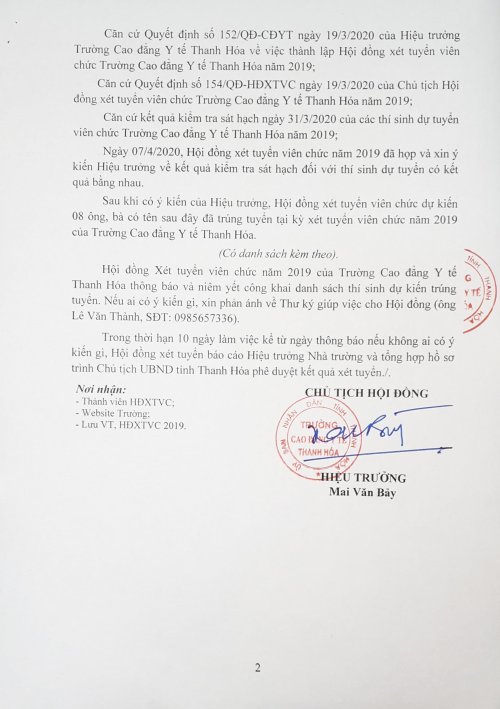 Căn cứ Quyết định số 152/QĐ-CĐYT ngày 19/3/2020 của Hiệu trưởng
Trường Cao đẳng Y tế Thanh Hóa về việc thành lập Hội đồng xét tuyển viên
chức Trường Cao đẳng Y tế Thanh Hóa năm 2019;
Căn cứ Quyết định số 154/QĐ-HĐXTVC ngày 19/3/2020 của Chủ tịch Hội
đồng xét tuyển viên chức Trường Cao đẳng Y tế Thanh Hóa năm 2019;
Căn cứ kết quả kiểm tra sát hạch ngày 31/3/2020 của các thí sinh dự tuyển
viên chức Trường Cao đẳng Y tế Thanh Hóa năm 2019;
Ngày 07/4/2020, Hội đồng xét tuyển viên chức năm 2019 đã họp và xin ý
kiến Hiệu trưởng về kết quả kiểm tra sát hạch đối với thí sinh dự tuyển có kết
quả bằng nhau.
Sau khi có ý kiến của Hiệu trưởng, Hội đồng xét tuyển viên chức dự kiến
08 ông, bà có tên sau đây đã trúng tuyển tại kỳ xét tuyển viên chức năm 2019
của Trường Cao đẳng Y tế Thanh Hóa.
(Có danh sách kèm theo).
Hội đồng Xét tuyển viên chức năm 2019 của Trường Cao đẳng Y tế
Thanh Hóa thông báo và niêm yết công khai danh sách thí sinh dự kiến trúng
tuyển. Nếu ai có ý kiến gì, xin phản ánh về Thư ký giúp việc cho Hội đồng (ông
Lê Văn Thành, SĐT: 0985657336).
Trong thời hạn 10 ngày làm việc kể từ ngày thông báo nếu không ai có ý
kiến gì, Hội đồng xét tuyển báo cáo Hiệu trưởng Nhà trường và tổng hợp hồ sơ
trình Chủ tịch UBND tỉnh Thanh Hóa phê duyệt kết quả xét tuyển./.
Nơi nhận:
- Thành viên HĐXTVC;
- Website Trường;
- Lưu VT, HĐXTVC 2019.
CHỦ TỊCH HỘI ĐỒNG
ỦY BAN NHÂN DÂN TỈNH THANH HÓA
TRƯỜNG
CAO ĐẲNG Y TẾ
THANH HÓA
HIỆU TRƯỞNG
Mai Văn Bảy
TỈNH THANH HÓA
G
Y TẾ
ÓA
2